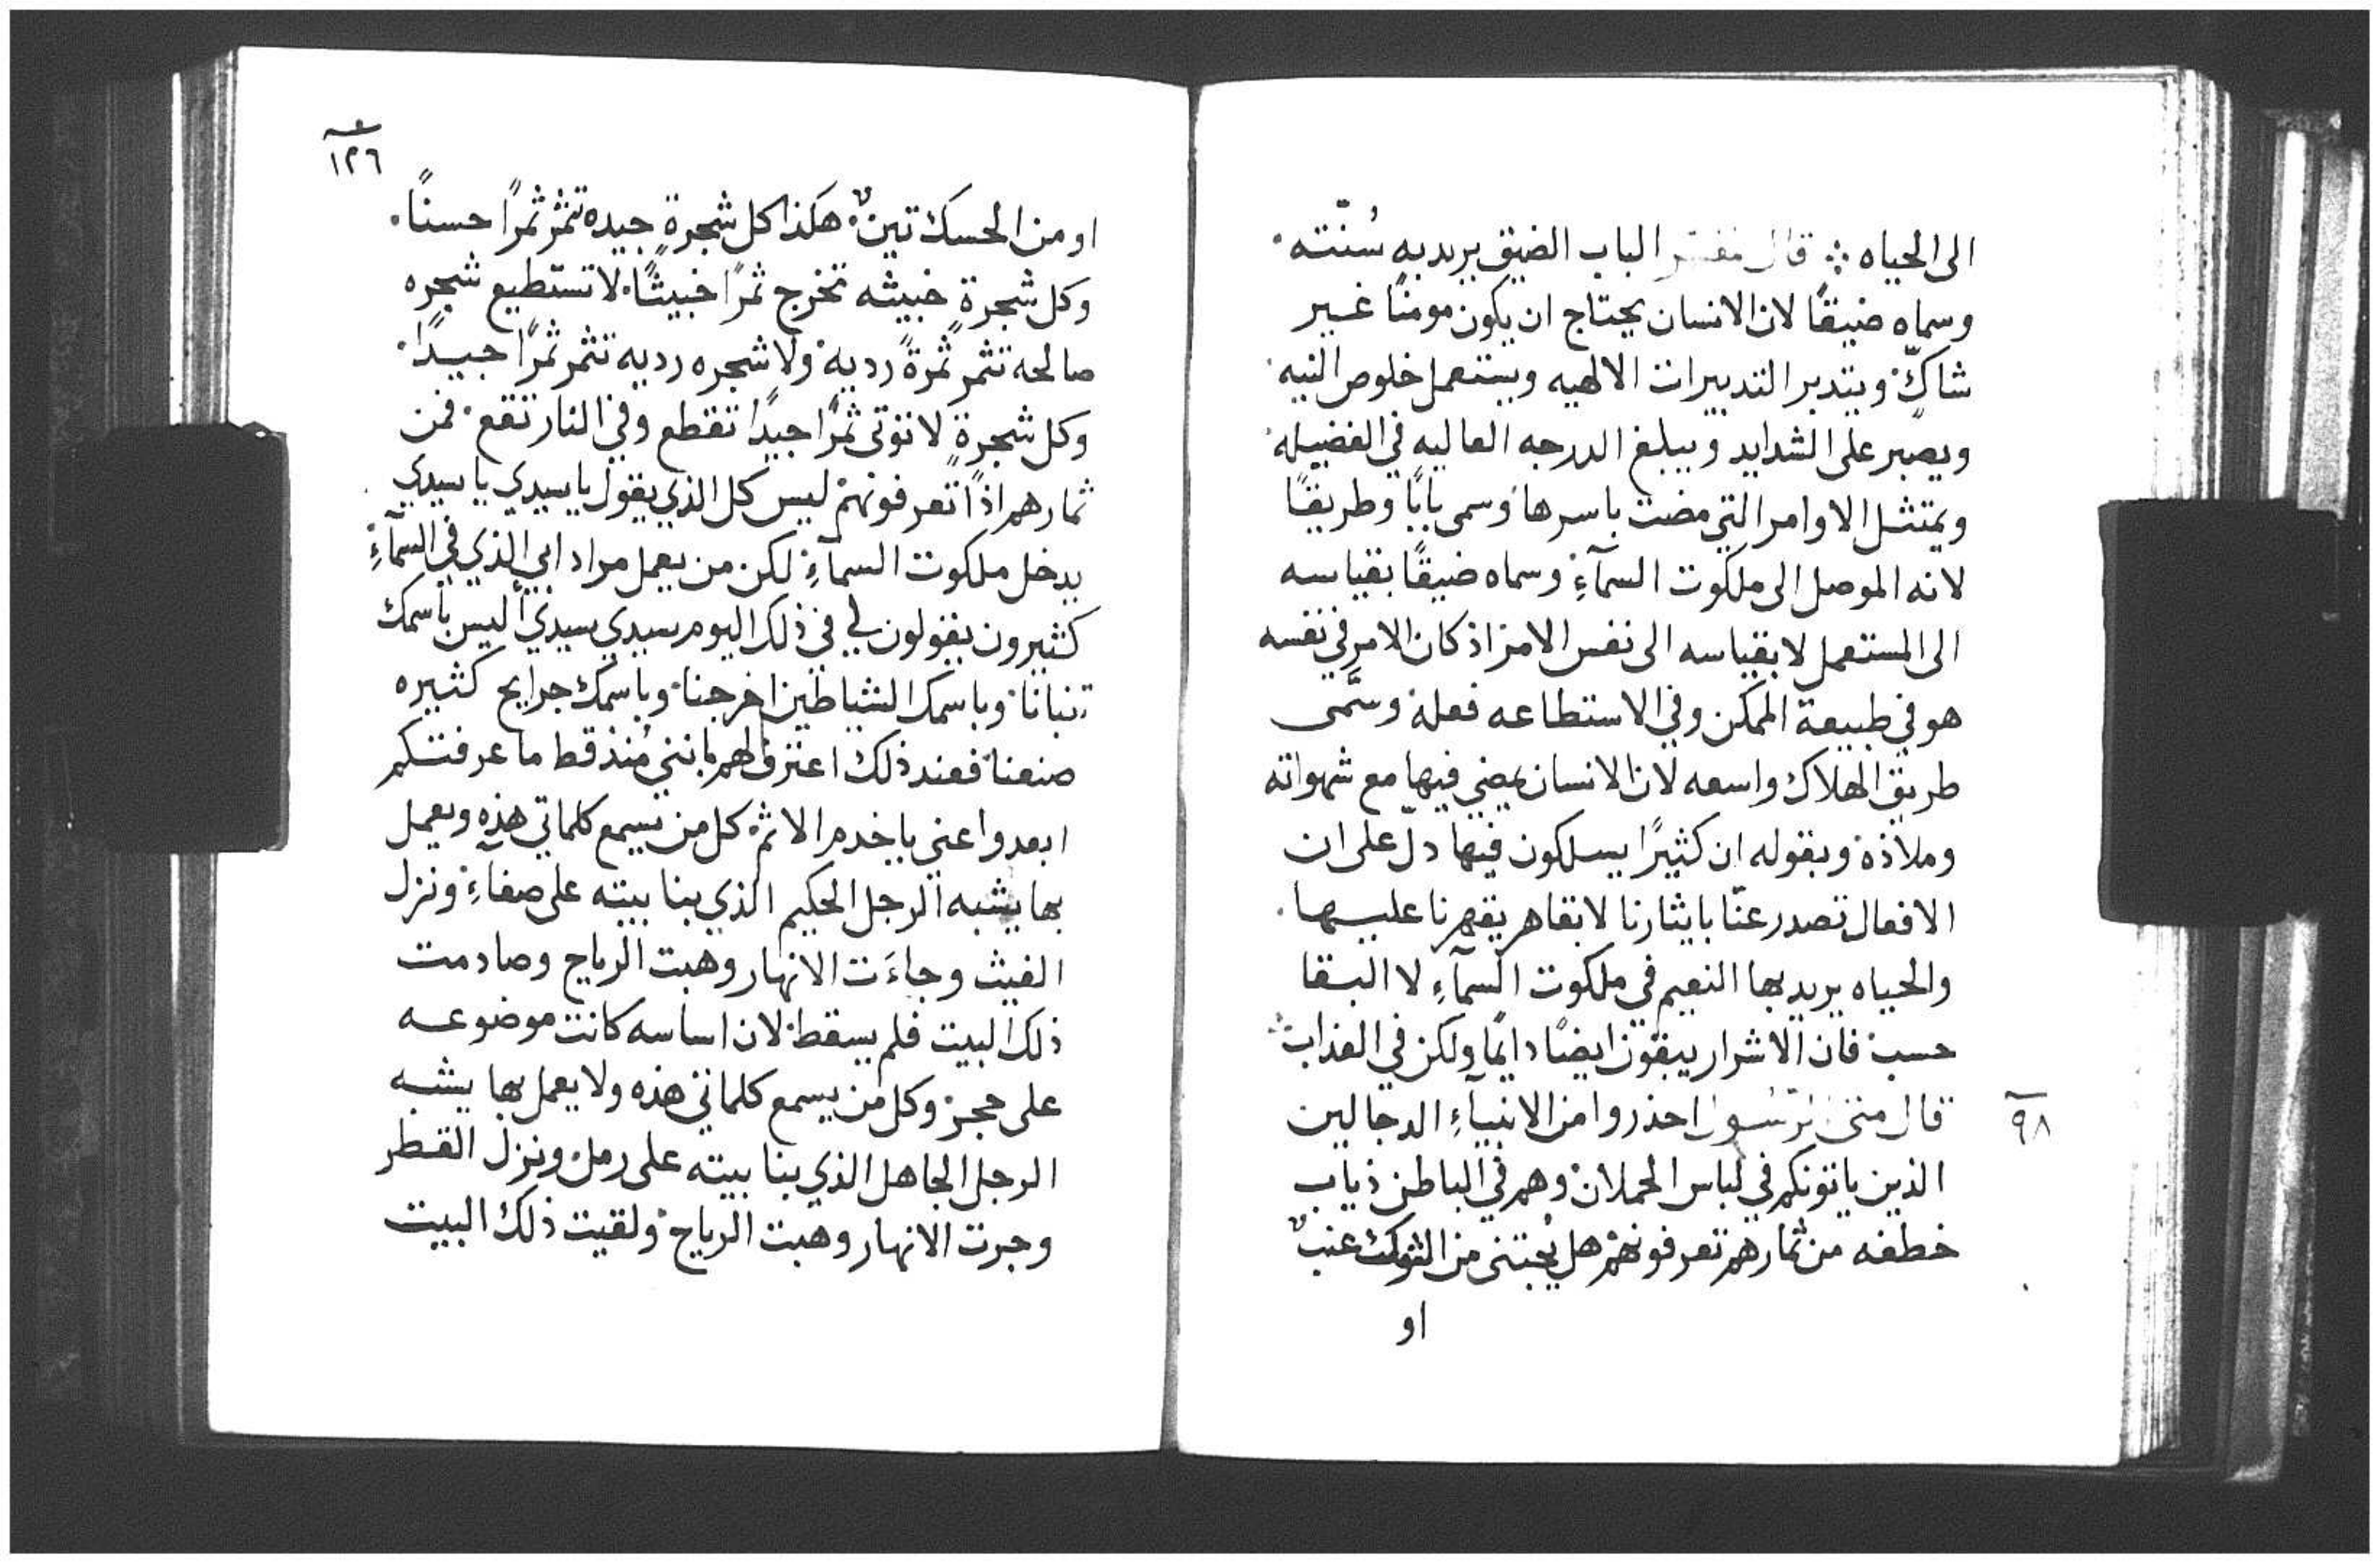 الى الحياه ܀ قال مفسر الباب الضيق يريد به سُنّته.
وسماه ضيقًا لان الانسان يحتاج ان يكون مومنًا غير
شاكٍّ ويتدبر التدبيرات الالهيه ويستعمل خلوص النيه
ويصبر على الشدايد ويبلغ الدرجه العاليه في الفضيله
ويمتثل الاوامر التي مضت باسرها وسمى بابًا وطريقًا
لانه الموصل الى ملكوت السمآءِ وسماه ضيقًا بقياسه
الى المستعمل لا بقياسه الى نفس الامر اذ كان الامر في نفسه
هو في طبيعة الممكن وفي الاستطاعه فعله وسَمّى
طريق الهلاك واسعه لان الانسان يمضي فيها مع شهواته
وملاذه وبقوله ان كثيرًا يسلكون فيها دلّ على ان
الافعال تصدر عنّا بايثارنا لا بقاهر يقهرنا عليها.
والحياه يريد بها النعيم في ملكوت السمآءِ لا البقا
حسب فان الاشرار يبقون ايضًا دايمًا ولكن في العذاب
٩٨
قال متى الرسول احذروا من الانبيآءِ الدجالين
الذين ياتونكم في لباس الحملان وهم في الباطن ذياب
خطفه من ثمارهم تعرفونهم هل يُجتنى من الشوك عنبٌ
او
١٢٦
او من الحسك تينٌ هكذا كل شجرةٍ جيده تثمر ثمرًا حسنًا.
وكل شجرةٍ خبيثه تخرج ثمرًا خبيثًا. لا تستطيع شجره
صالحه تثمر ثمرةً رديه ولا شجره رديه تثمر ثمرًا جيدًا.
وكل شجرةٍ لا توتى ثمرًا جيدًا تقطع وفي النار تقع فمن
ثمارهم اذًا تعرفونهم ليس كل الذي يقول يا سيدي يا سيدي
يدخل ملكوت السمآءِ لكن من يعمل مراد ابي الذي في السمآءِ
كثيرون يقولون لي في ذلك اليوم سيدي سيدي أليس باسمك
تنبانا وباسمك الشياطين اخرجنا وباسمك جرايح كثيره
صنعنا فعند ذلك اعترف لهم بانني مُنذ قط ما عرفتكم
ابعدوا عني يا خدم الاثم كل من يسمع كلماتي هذه ويعمل
بها يشبه الرجل الحكيم الذي بنا بيته على صفآءِ ونزل
الغيث وجاءَت الانهار وهبت الرياح وصادمت
ذلك البيت فلم يسقط لان اساسه كانت موضوعه
على حجر وكل من يسمع كلماتي هذه ولا يعمل بها يشبه
الرجل الجاهل الذي بنا بيته على رمل ونزل القطر
وجرت الانهار وهبت الرياح ولقيت ذلك البيت